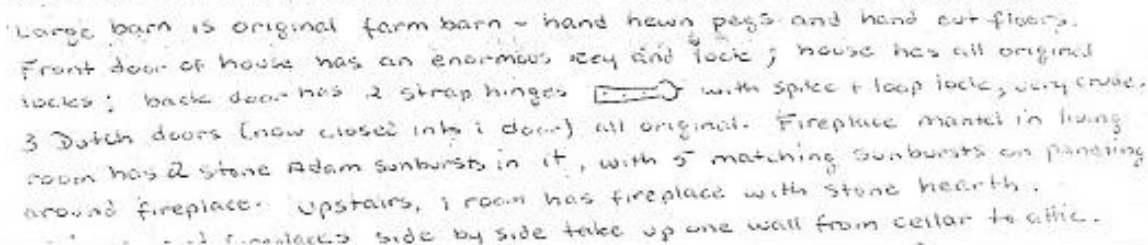 Large barn is original farm barn - hand hewn pegs and hand cut floors.
Front door of house has an enormous key and lock ; house has all original
locks ; back door has 2 strap hinges with spike + loop lock, very crude.
3 Dutch doors (now closed into 1 door) all original. Fireplace mantel in living
room has 2 stone Adam sunbursts in it, with 5 matching sunbursts on paneling
around fireplace. Upstairs, 1 room has fireplace with stone hearth.
fireplaces side by side take up one wall from cellar to attic.